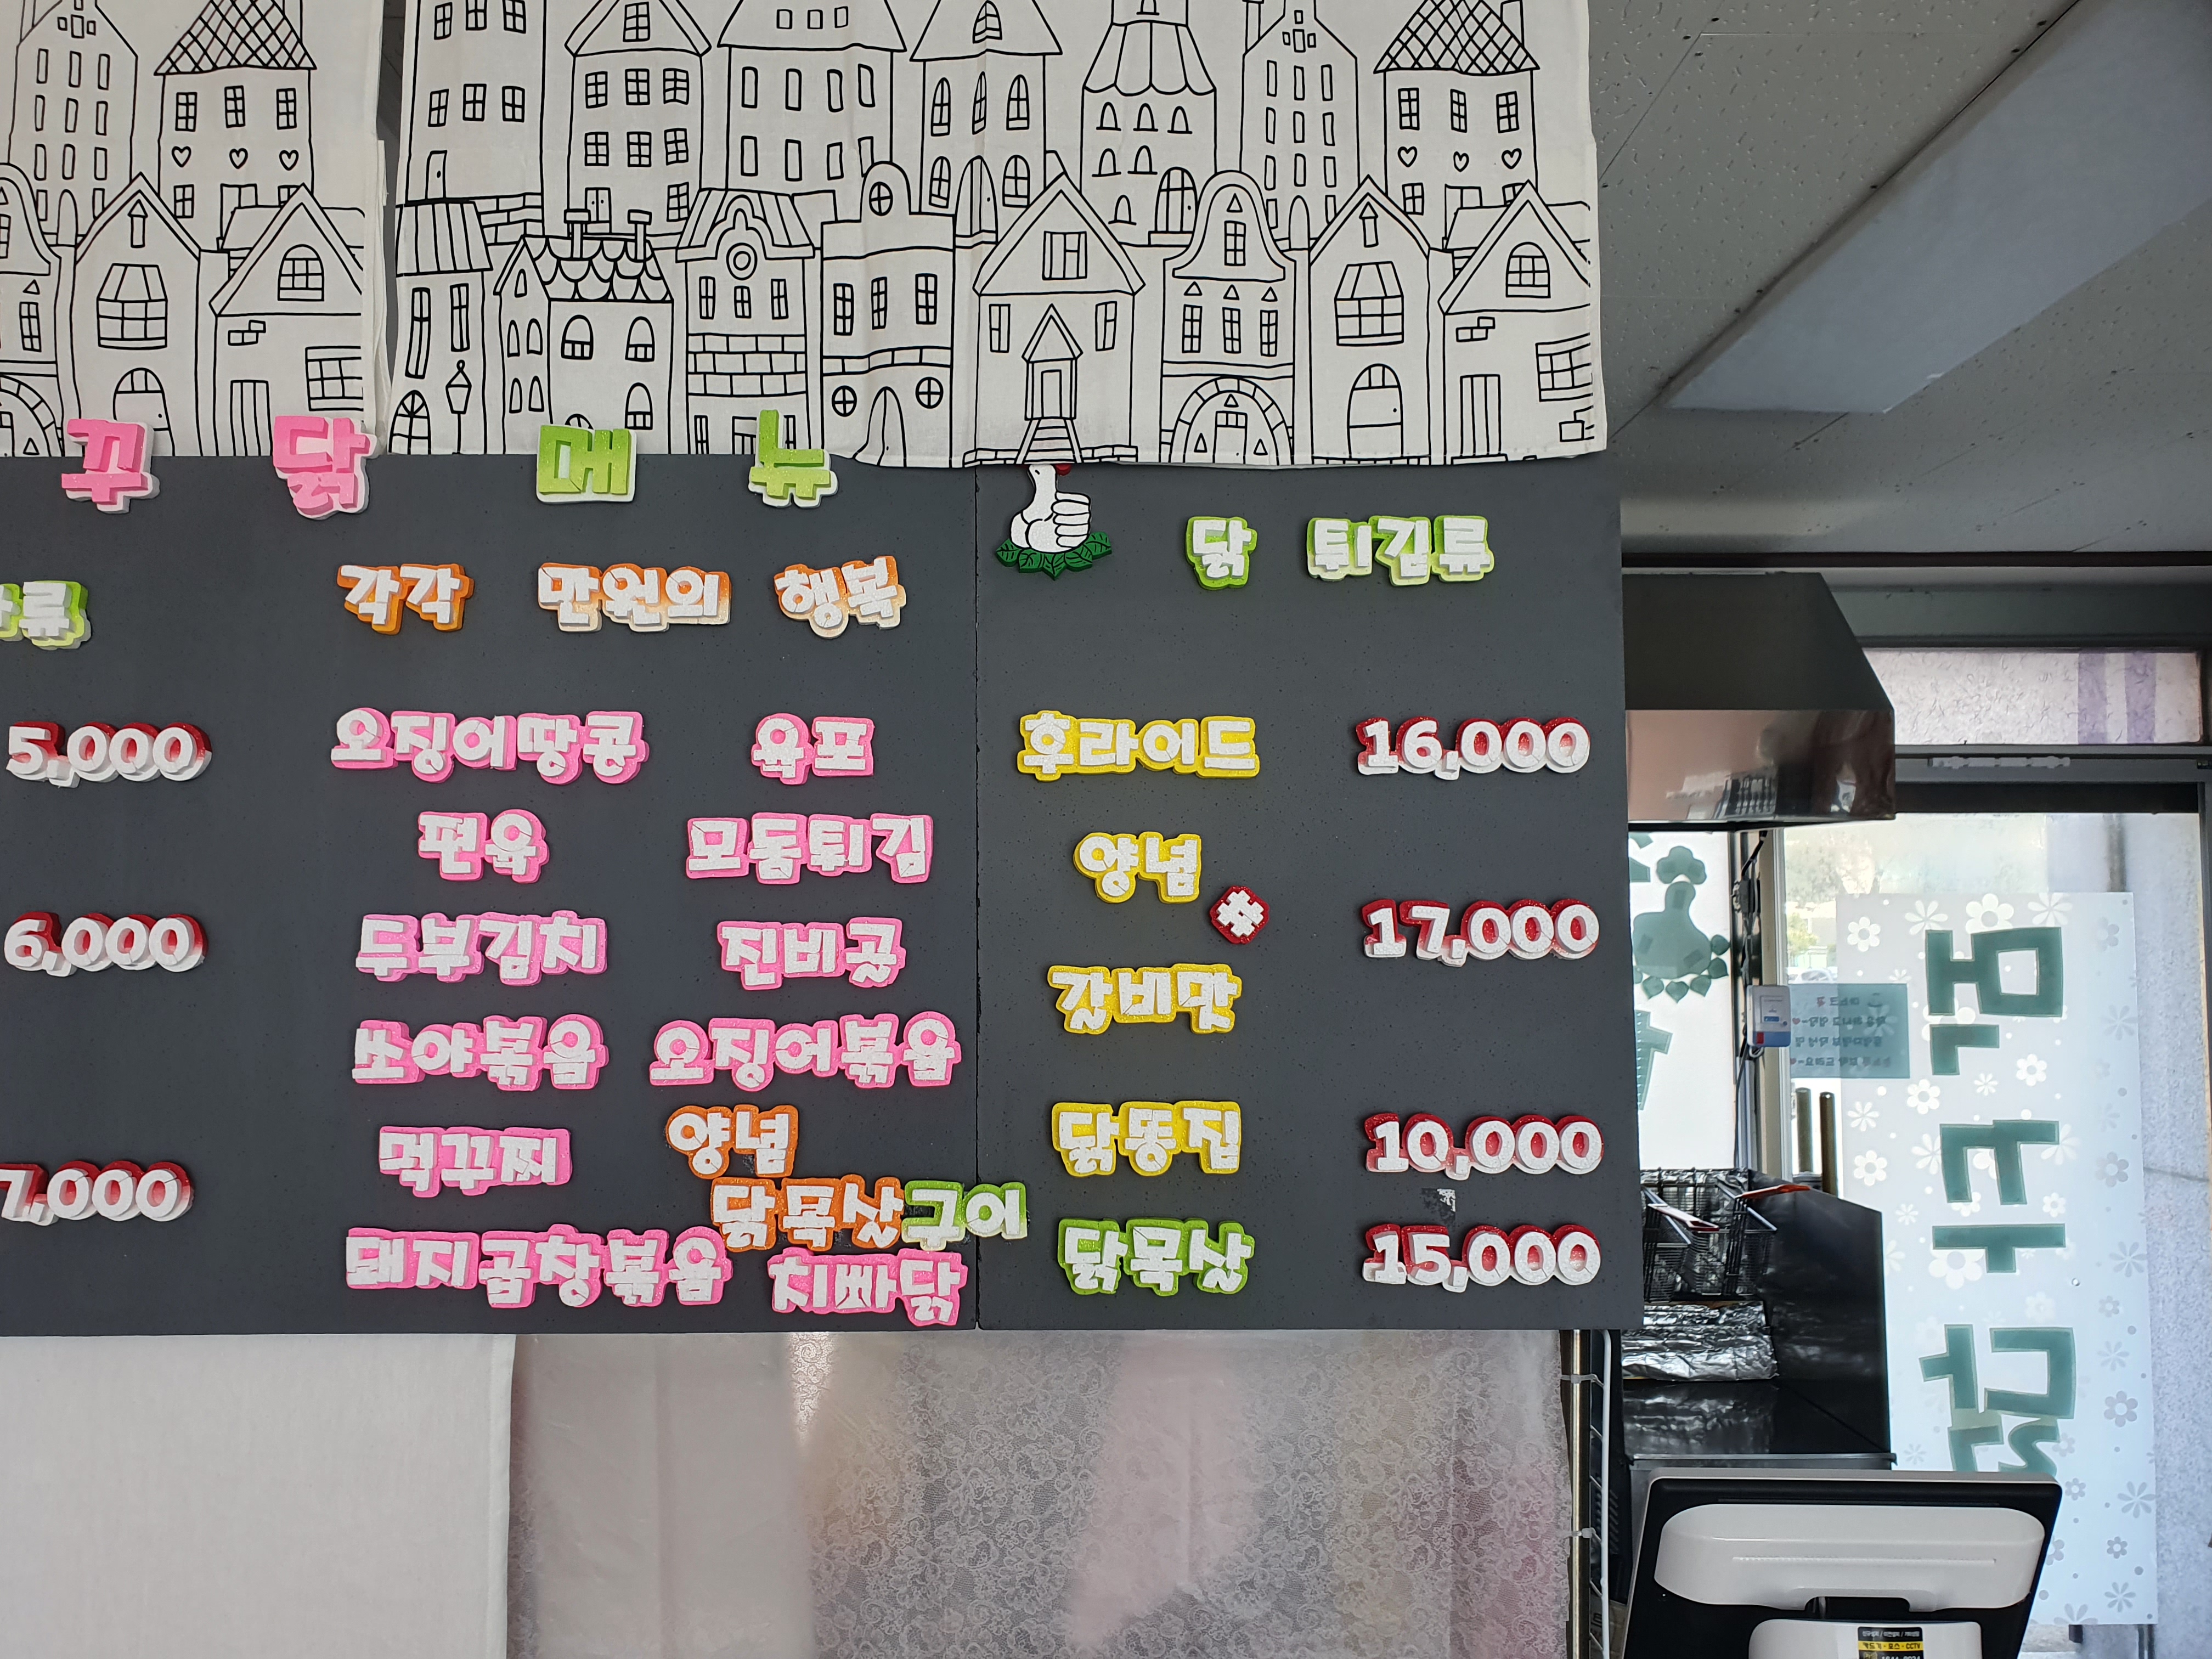 꾸 닭 매 뉴
류
5,000
6,000
7,000
각각 만원의 행복
오징어땅콩 육포
편육 모동튀김
두부김치 진비골
쏘야볶음 오징어볶음
먹꾸찌 양념
닭목살구이
돼지곱창볶음 치빠닭
닭 튀김류
후라이드 16,000
양념
갈비맛 17,000
닭똥집 10,000
닭목살 15,000